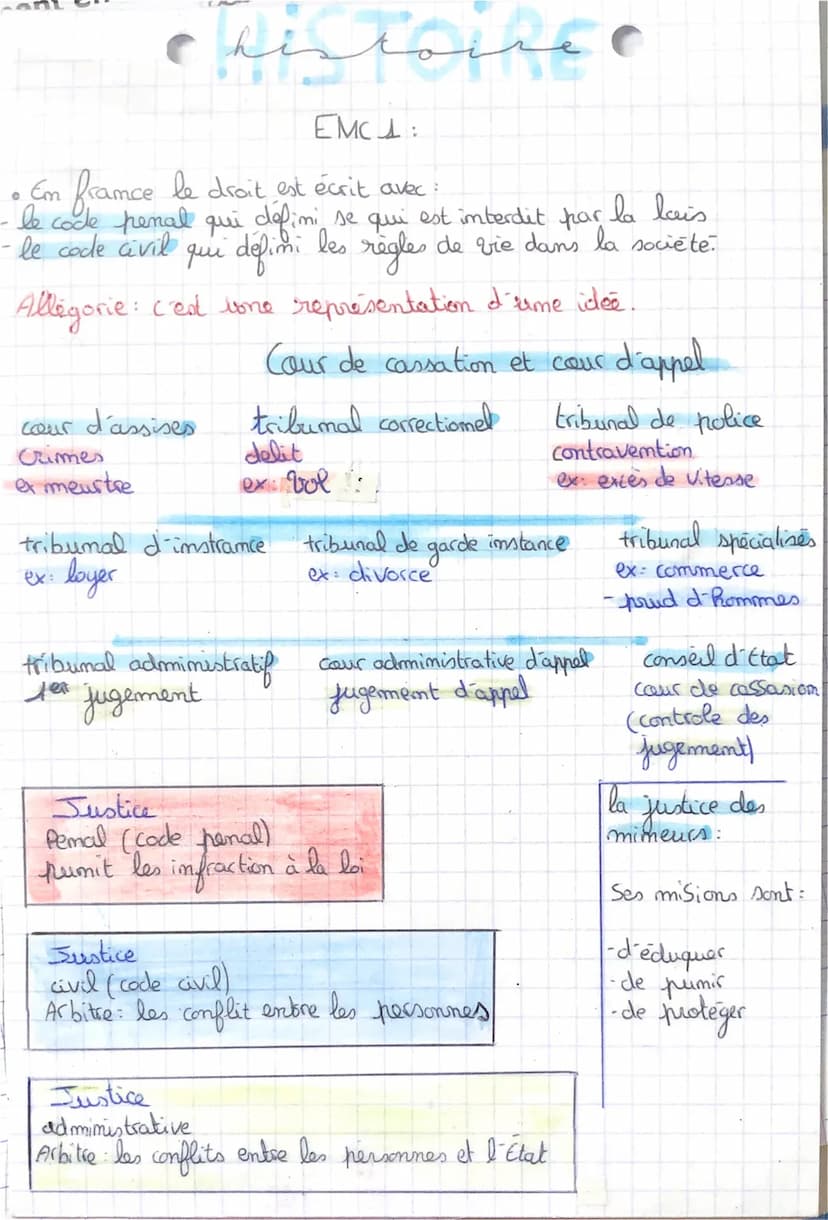 HiSTOiRE
histoire
EMC 1 :
• En france le droit est écrit avec :
- le code penal qui défini se qui est interdit par la lois
- le code civil qui défini les règles de vie dans la société.
Allégorie : c'est une représentation d'une idée.
Cour de cassation et cour d'appel
cour d'assises tribunal correctionel tribunal de police
Crimes delit contravention
ex meurtre ex : Vol ex : exiès de vitesse
tribunal d'instrance tribunal de garde instance tribunal spécialisés
ex : loyer ex : divorce ex : commerce
- prud d'hommes
tribunal administratif cour administrative d'appel conseil d'État
1er jugement jugement d'appel cour de cassasion
(controle des
jugement)
Justice
Penal (code penal)
punit les infraction à la loi
la justice des
mineurs :
Ses misions sont :
- d'éduquer
- de punir
- de protéger
Justice
civil (code civil)
Arbitre : les conflit entre les personnes
Justice
administrative
Arbitre : les conflits entre les personnes et l'État